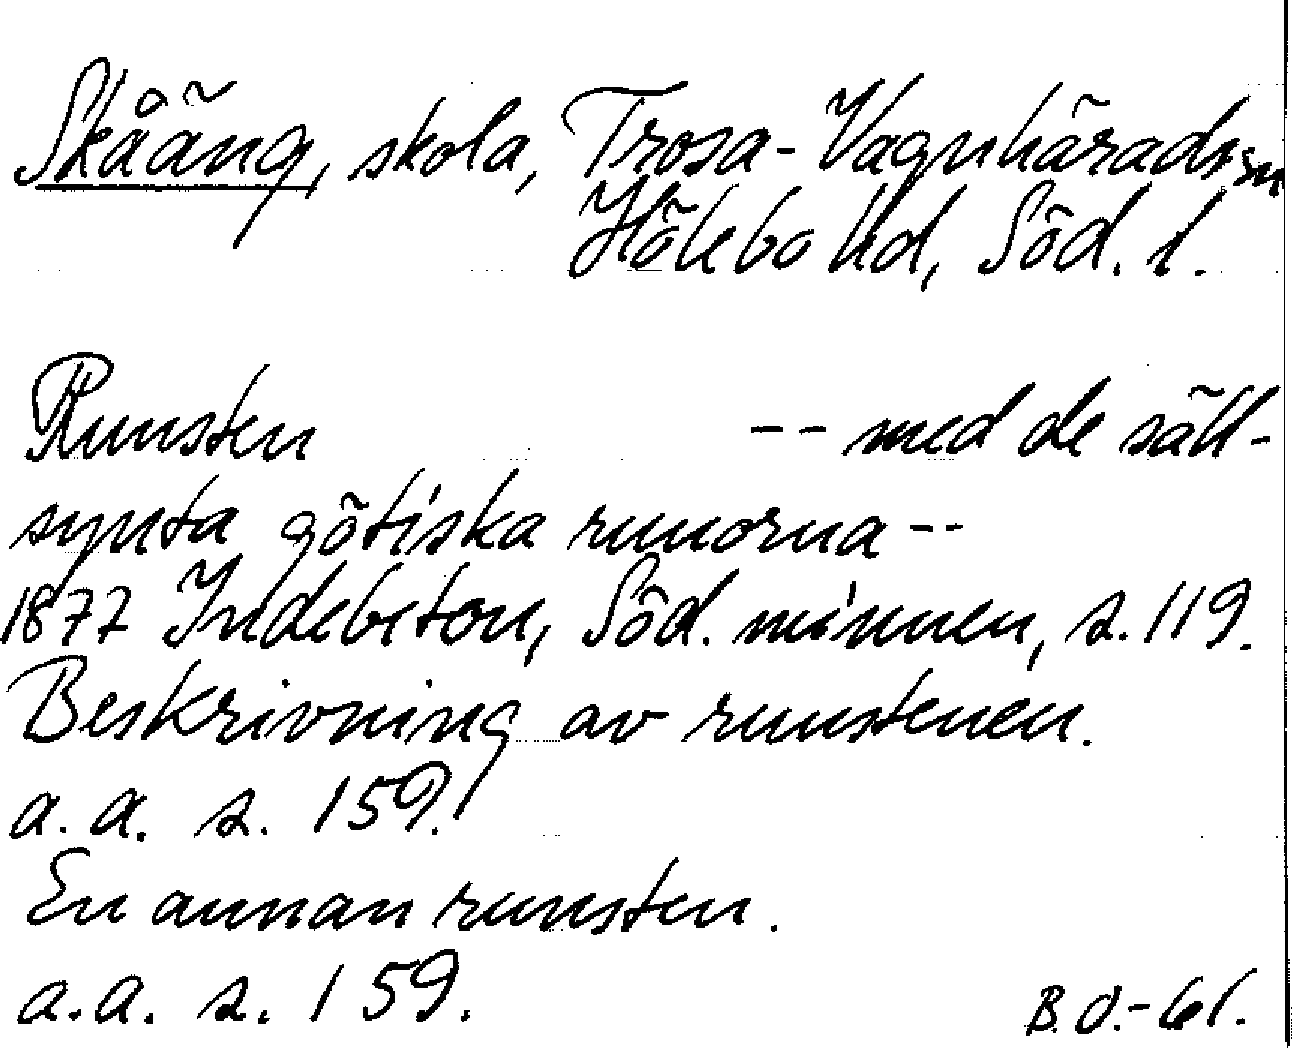 Skåäng, skola, Trosa-Vagnhärads sn
Hölebo hd, Söd. l.
Runsten -- med de säll-
synta götiska runorna --
1877 Indebetou, Söd. minnen, s. 119.
Beskrivning av runstenen.
a. a. s. 159.
En annan runsten.
a.a. s. 159.
B.O.-61.